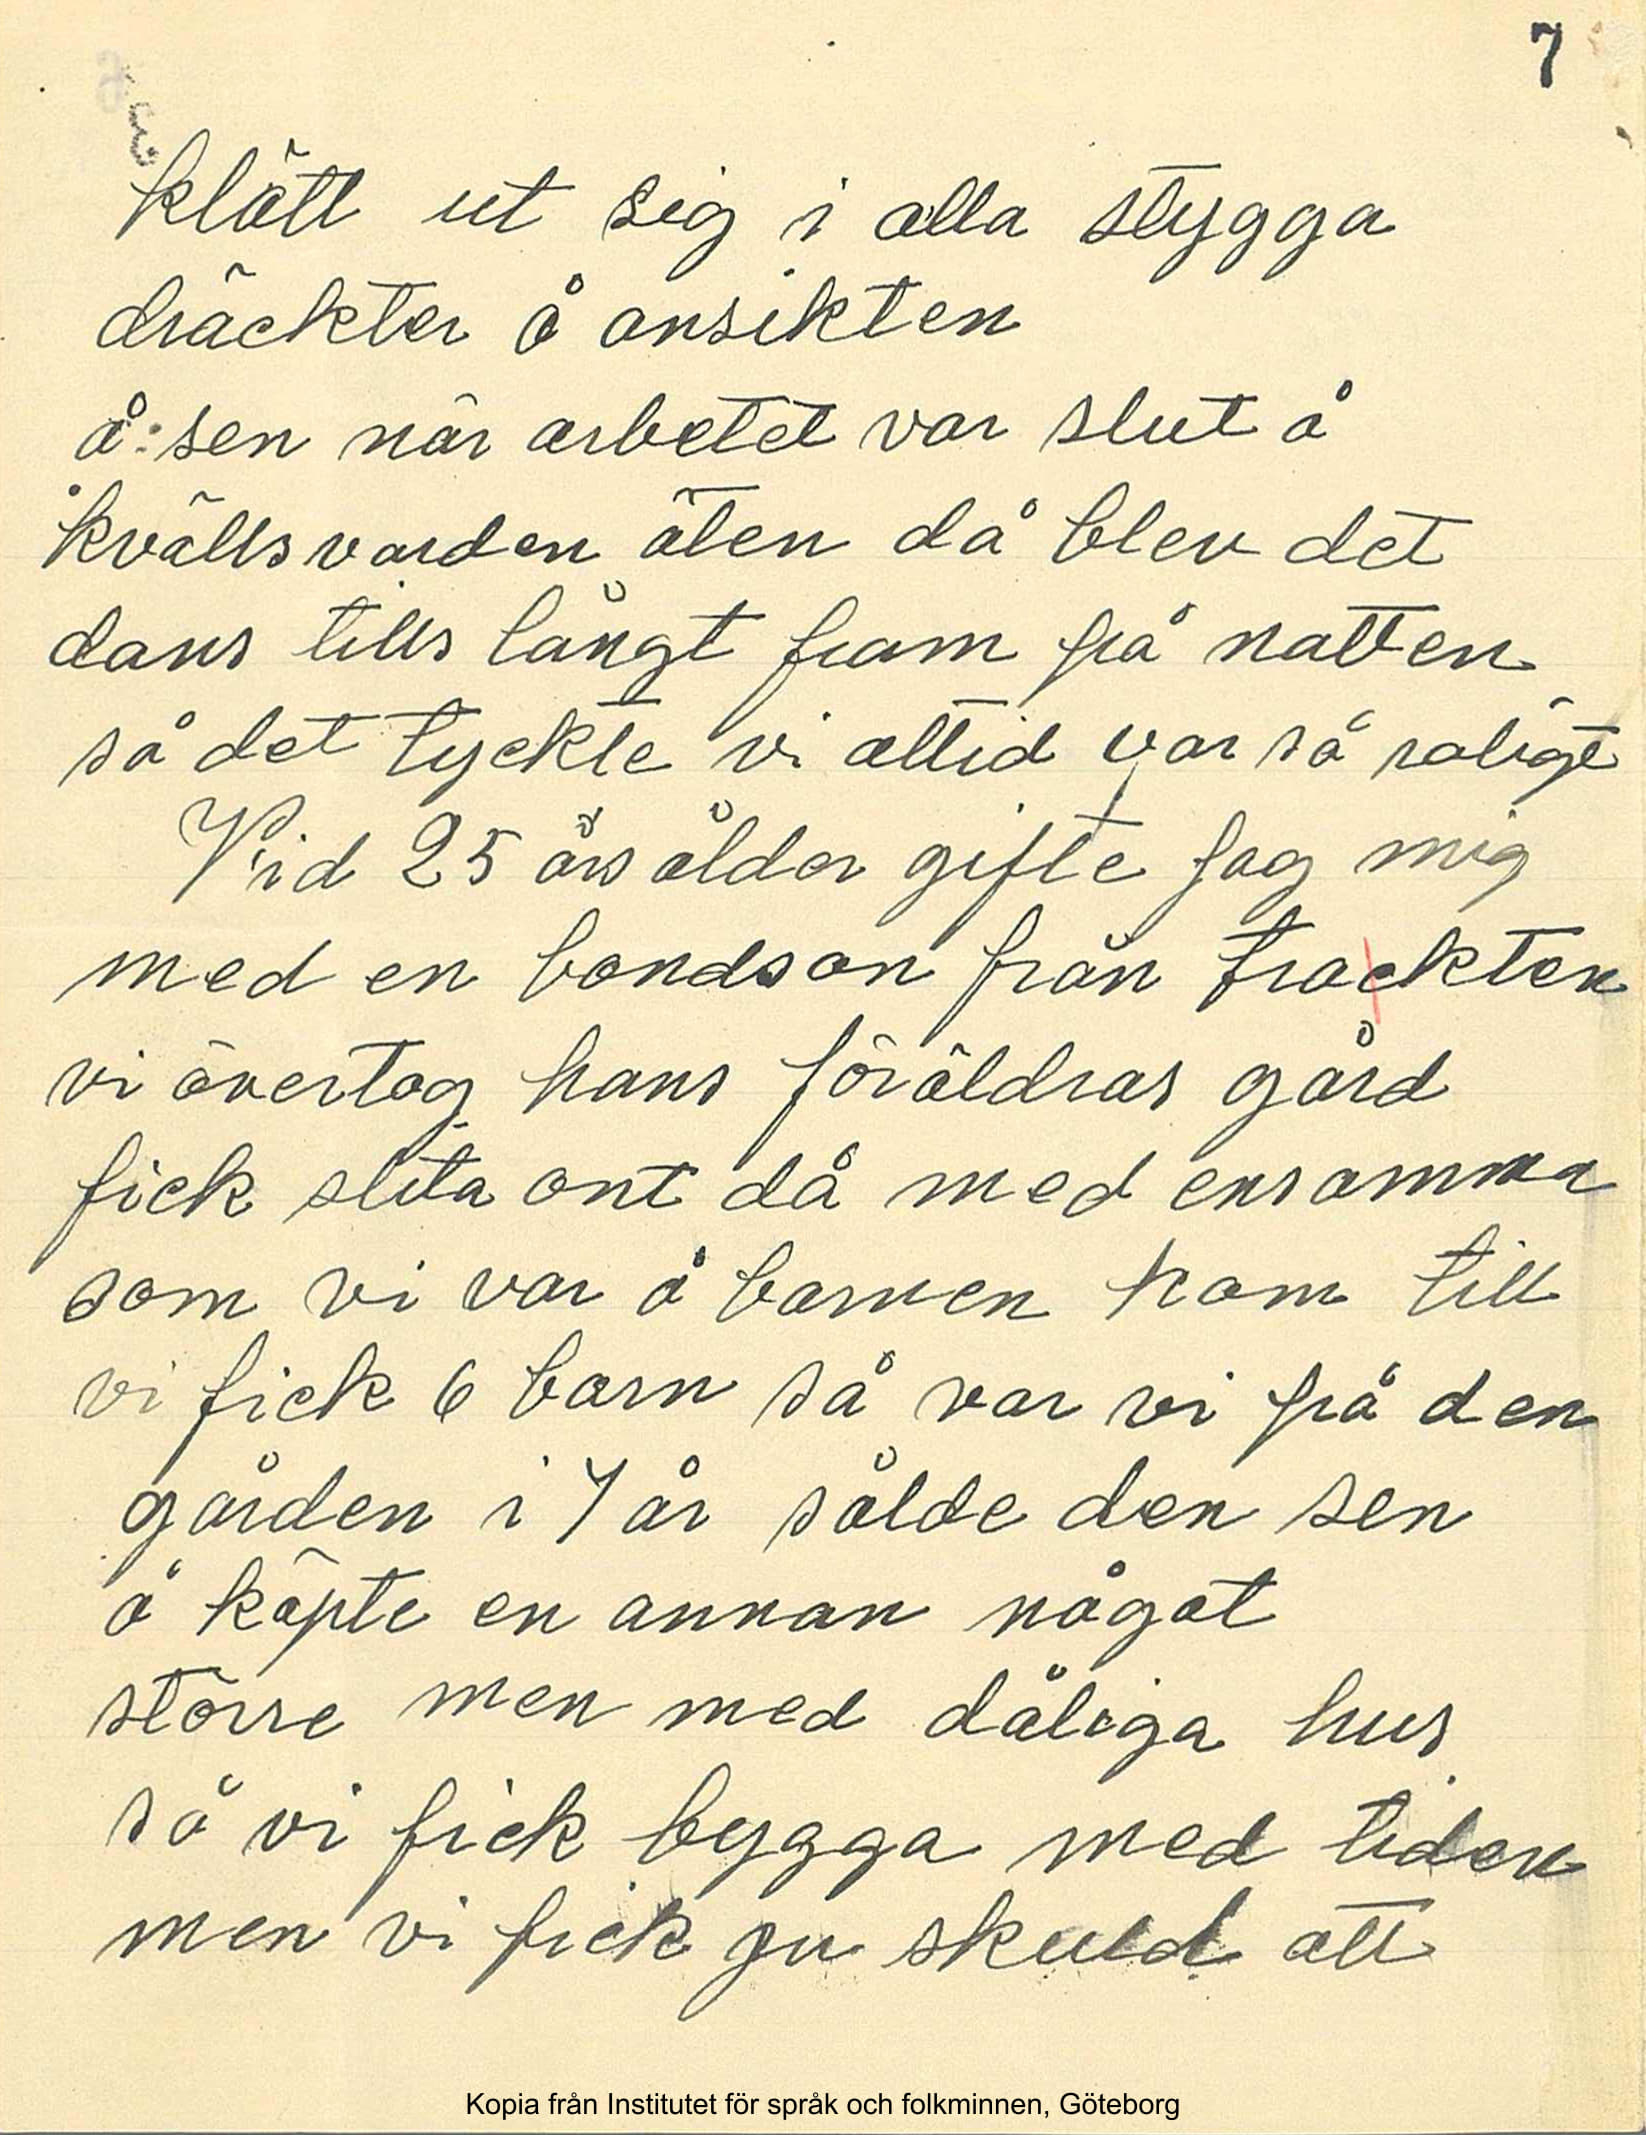 7
klätt ut sig i alla stygga
dräckter å ansikten
å sen när arbetet var slut å
kvällsvarden äten då blev det
dans tills långt fram på natten
så det tyckte vi alltid var så roligt
Vid 25 års ålder gifte jag mig
med en bondson från trackten
vi övertog hans föräldras gård
fick slita ont då med ensamma
som vi var å barnen kom till
vi fick 6 barn så var vi på den
gården i 7 år sålde den sen
å köpte en annan något
större men med dåliga hus
så vi fick bygga med tiden
men vi fick ju skuld att
Kopia från Institutet för språk och folkminnen, Göteborg